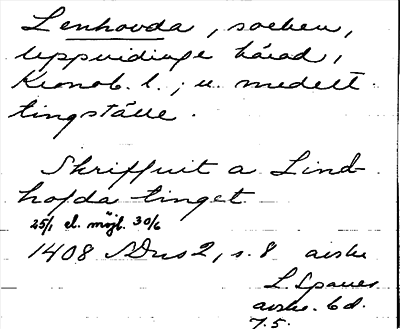 Lenhovda, socken,
Uppvidinge härad,
Kronob. l.; u. medelt.
tingställe.
Skriffuit a Lind-
hofda tinget
25/1 el. möjl. 30/6
1408 SDns2, s. 8 avskr
avskr. bd.
7.5.